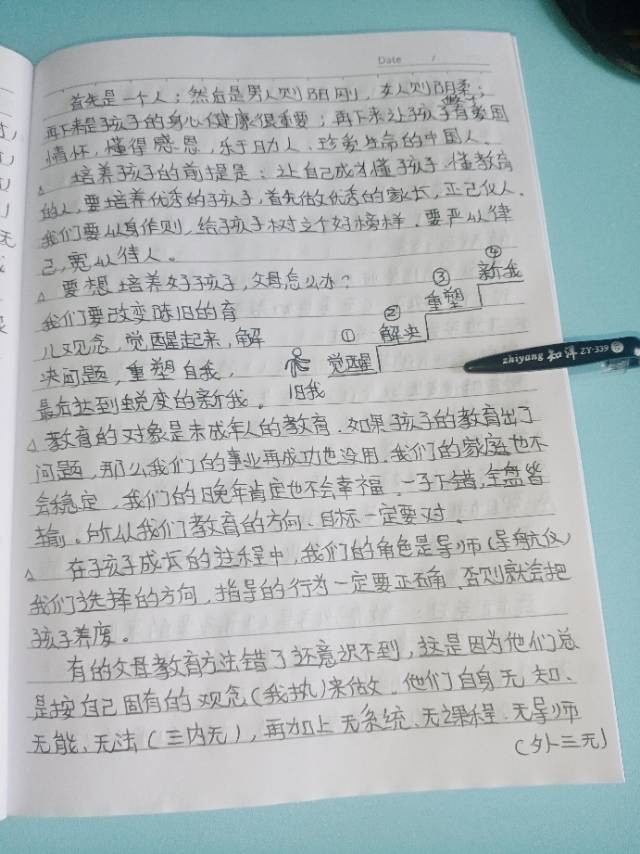 Date /
首先是一个人；然后是男人则阳刚，女人则阴柔；
再下来是孩子的身心健康很重要；再下来让孩子有爱国
情怀，懂得感恩，乐于助人，珍爱生命的中国人。
△ 培养孩子的前提是：让自己成为懂孩子，懂教育
的人，要培养优秀的孩子，首先做优秀的家长，正己化人。
我们要以身作则，给孩子树立个好榜样，要严以律
己，宽以待人。
△ 要想培养好孩子，父母怎么办？
我们要改变陈旧的育
儿观念，觉醒起来，解
决问题，重塑自我，
最后达到蜕变的新我。
旧我
① 觉醒
② 解决
③ 重塑
④ 新我
zhiyang 知洋 ZY-339
△ 教育的对象是未成年人的教育，如果孩子的教育出了
问题，那么我们的事业再成功也没用，我们的家庭也不
会稳定，我们的晚年肯定也不会幸福，一子下错，全盘皆
输。所以我们教育的方向、目标一定要对。
△ 在孩子成长的过程中，我们的角色是导师（导航仪）
我们选择的方向，指导的行为一定要正确，否则就会把
孩子养废。
有的父母教育方法错了还意识不到，这是因为他们总
是按自己固有的观念（我执）来做，他们自身无知、
无能、无法（三内无），再加上无系统、无课程、无导师
（外三无）